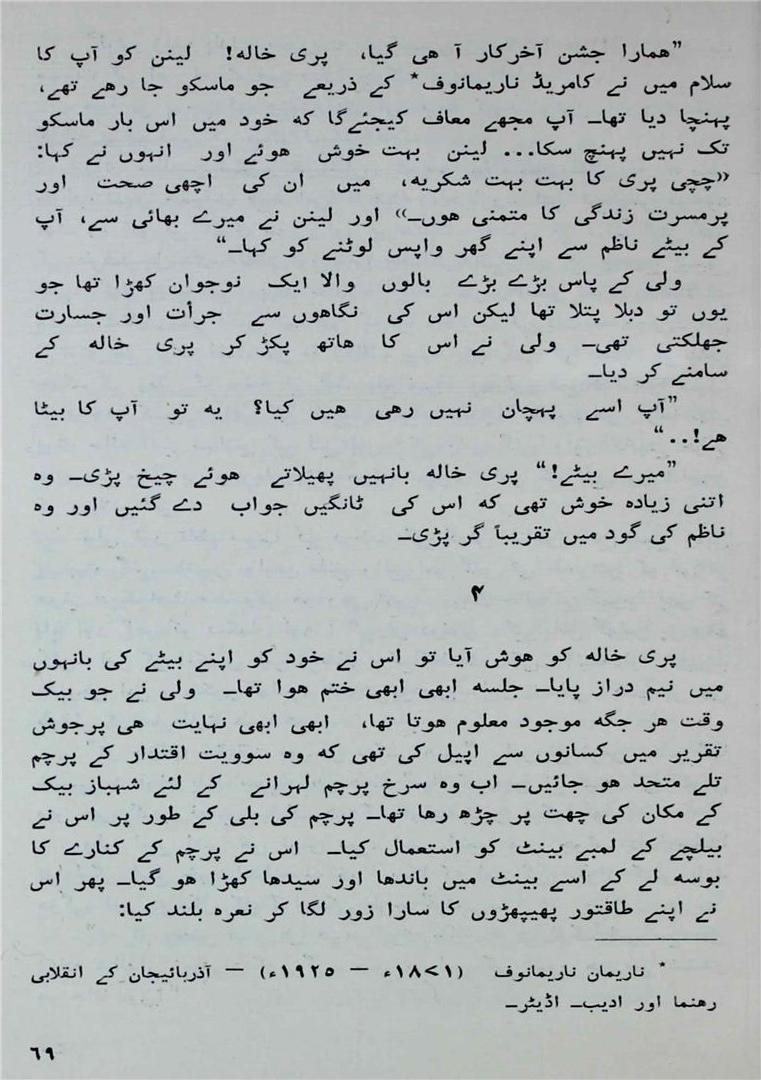 ”ھمارا جشن آخرکار آ ھی گیا، پری خالہ! لینن کو آپ کا
سلام میں نے کامریڈ ناریمانوف* کے ذریعے جو ماسکو جا رھے تھے،
پہنچا دیا تھا۔ آپ مجھے معاف کیجئےگا کہ خود میں اس بار ماسکو
تک نہیں پہنچ سکا... لینن بہت خوش ھوئے اور انہوں نے کہا:
«چچی پری کا بہت بہت شکریہ، میں ان کی اچھی صحت اور
پرمسرت زندگی کا متمنی ھوں۔» اور لینن نے میرے بھائی سے، آپ
کے بیٹے ناظم سے اپنے گھر واپس لوٹنے کو کہا۔“
ولی کے پاس بڑے بڑے بالوں والا ایک نوجوان کھڑا تھا جو
یوں تو دبلا پتلا تھا لیکن اس کی نگاھوں سے جرأت اور جسارت
جھلکتی تھی۔ ولی نے اس کا ھاتھ پکڑ کر پری خالہ کے
سامنے کر دیا۔
”آپ اسے پہچان نہیں رھی ھیں کیا؟ یہ تو آپ کا بیٹا
ھے!..“
”میرے بیٹے!“ پری خالہ بانہیں پھیلاتے ھوئے چیخ پڑی۔ وہ
اتنی زیادہ خوش تھی کہ اس کی ٹانگیں جواب دے گئیں اور وہ
ناظم کی گود میں تقریباً گر پڑی۔
۴
پری خالہ کو ھوش آیا تو اس نے خود کو اپنے بیٹے کی بانہوں
میں نیم دراز پایا۔ جلسہ ابھی ابھی ختم ھوا تھا۔ ولی نے جو بیک
وقت ھر جگہ موجود معلوم ھوتا تھا، ابھی ابھی نہایت ھی پرجوش
تقریر میں کسانوں سے اپیل کی تھی کہ وہ سوویت اقتدار کے پرچم
تلے متحد ھو جائیں۔ اب وہ سرخ پرچم لہرانے کے لئے شہباز بیک
کے مکان کی چھت پر چڑھ رھا تھا۔ پرچم کی بلی کے طور پر اس نے
بیلچے کے لمبے بینٹ کو استعمال کیا۔ اس نے پرچم کے کنارے کا
بوسہ لے کے اسے بینٹ میں باندھا اور سیدھا کھڑا ھو گیا۔ پھر اس
نے اپنے طاقتور پھیپھڑوں کا سارا زور لگا کر نعرہ بلند کیا:
* ناریمان ناریمانوف (۱۸۷۱ء — ۱۹۲۵ء) — آذربائیجان کے انقلابی
رھنما اور ادیب۔ اڈیٹر۔
۶۹